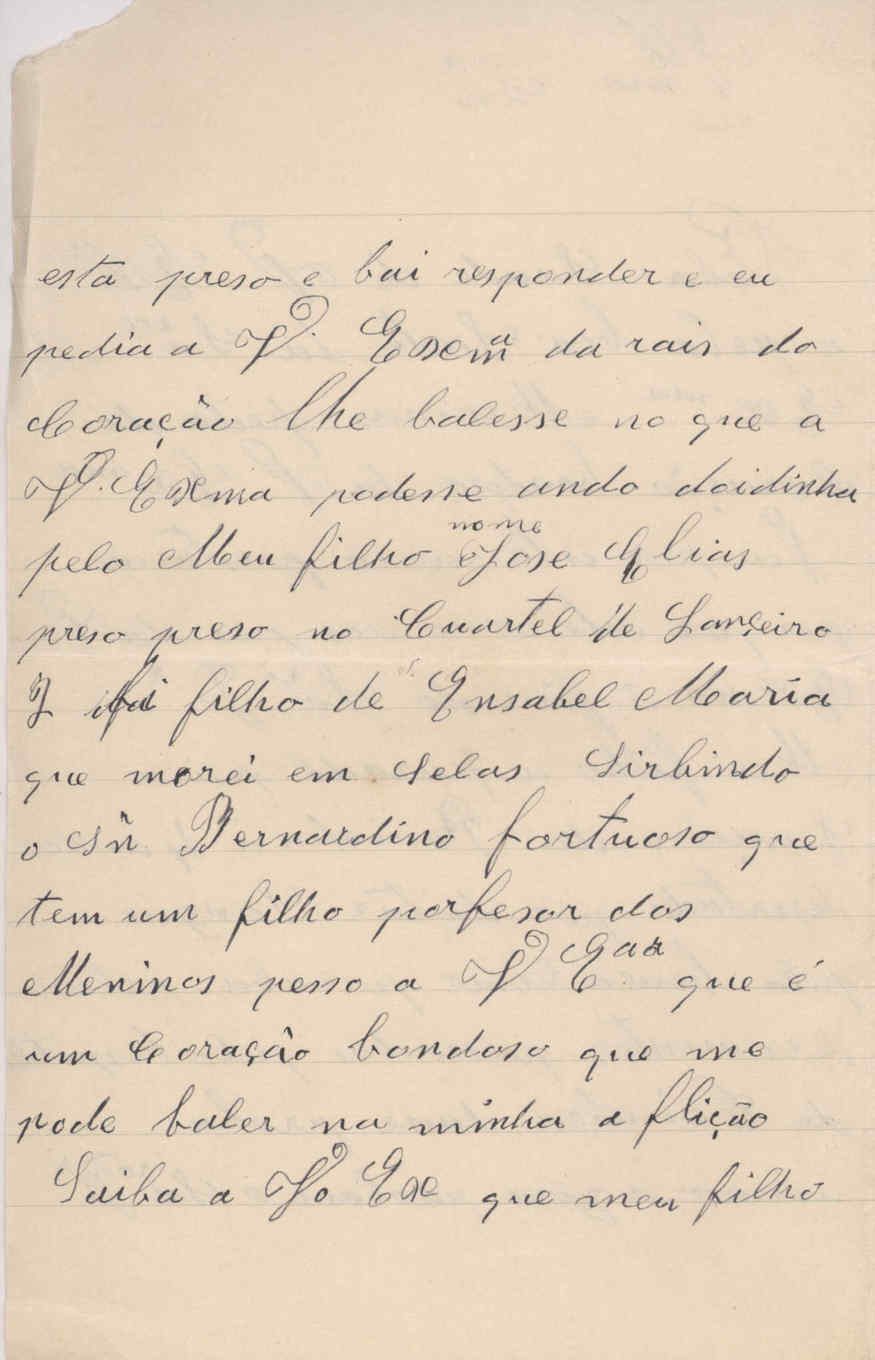 esta preso e bai responder e eu
pedia a V. Exem.ª da rais do
Coração lhe balesse no que a
V. Exma podesse ando doidinha
pelo Meu filho nome Jose Elias
preso preso no Cuartel de Lanceiro
2 filho de Ensabel Maria
que morei em Selas Sirbindo
o Sñr. Bernardino fortuoso que
tem um filho porfesor dos
Meninos pesso a V Eaa que é
um Coração bondoso que me
pode baler na minha a flição
Saiba a Vo Exe que meu filho